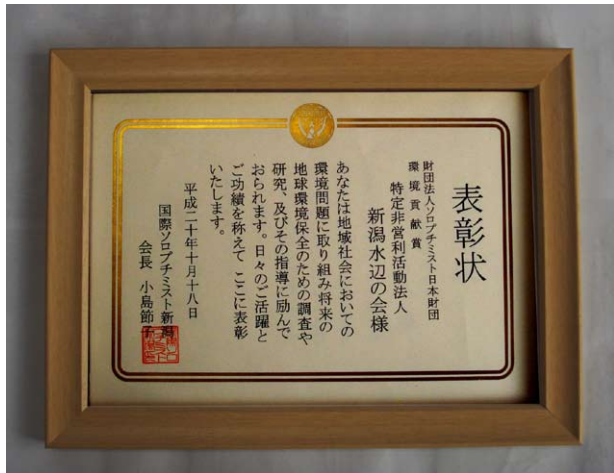 表彰状
財団法人ソロプチミスト日本財団
環境貢献賞
特定非営利活動法人
新潟水辺の会様
あなたは地域社会においての
環境問題に取り組み将来の
地球環境保全のための調査や
研究、及びその指導に励んで
おられます。日々のご活躍と
ご功績を称えて ここに表彰
いたします。
平成二十年十月十八日
国際ソロプチミスト新潟
会長 小島節子